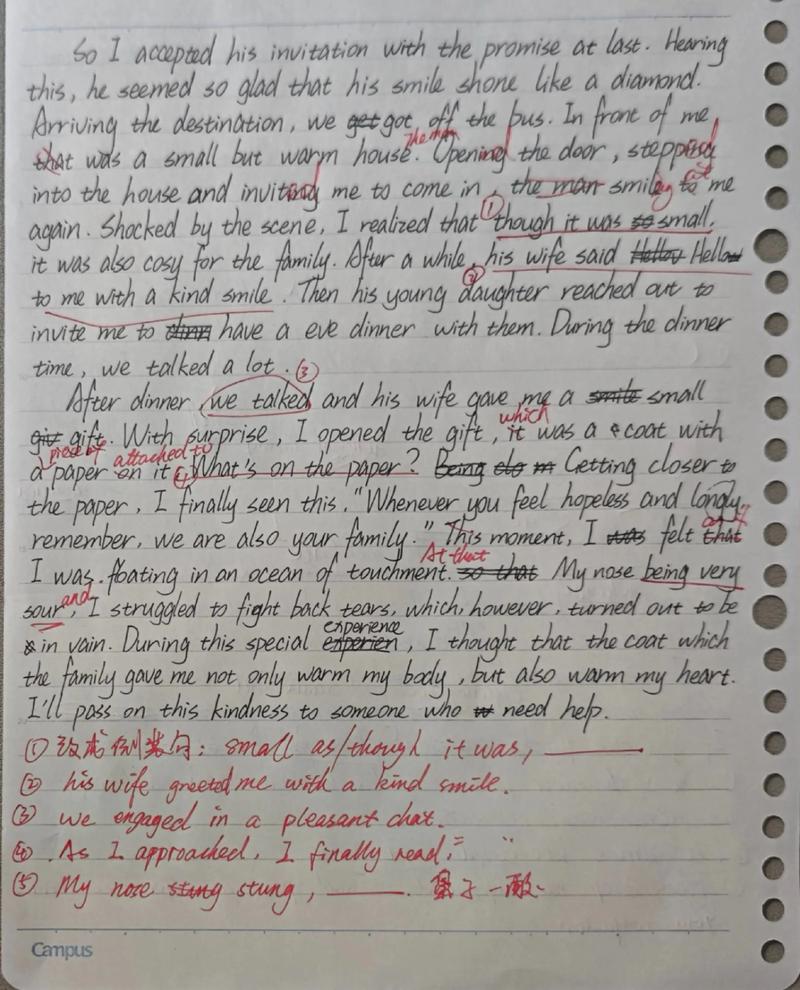 So I accepted his invitation with the promise at last. Hearing
this, he seemed so glad that his smile shone like a diamond.
Arriving the destination, we get got off the bus. In front of me,
that was a small but warm house. The man Opening the door, stepping
into the house and inviting me to come in, the man smiling to at me
again. Shocked by the scene, I realized that ① though it was so small,
it was also cosy for the family. After a while, his wife said Hellow Hellow
to me with a kind smile. ② Then his young daughter reached out to
invite me to have a eve dinner with them. During the dinner
time, we talked a lot. ③
After dinner, we talked and his wife gave me a smile small
gift gift. With surprise, I opened the gift, which it was a coat with
a piece of paper on it attached to ④ What's on the paper? Being clo m Getting closer to
the paper, I finally seen this. "Whenever you feel hopeless and longly,
remember, we are also your family." This moment, I was felt that
At that
I was floating in an ocean of touchment. so that My nose being very
sour, and I struggled to fight back tears, which, however, turned out to be
in vain. During this special experien experience, I thought that the coat which
the family gave me not only warm my body, but also warm my heart.
I'll pass on this kindness to someone who need help.
① 改成倒装句: small as/though it was,
② his wife greeted me with a kind smile.
③ we engaged in a pleasant chat.
④ As I approached, I finally read, "
⑤ My nose stung stung, 鼻子一酸
Campus